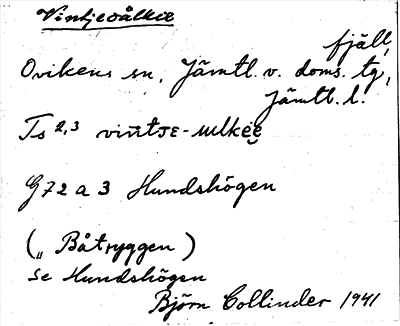 Vintjeoålkie
fjäll,
Ovikens sn, Jämtl. v. doms. tg,
Jämtl. l.
Ts 2,3
G72 a 3 Hundshögen
(„ Båtryggen )
Se Hundshögen
Björn Collinder 1941